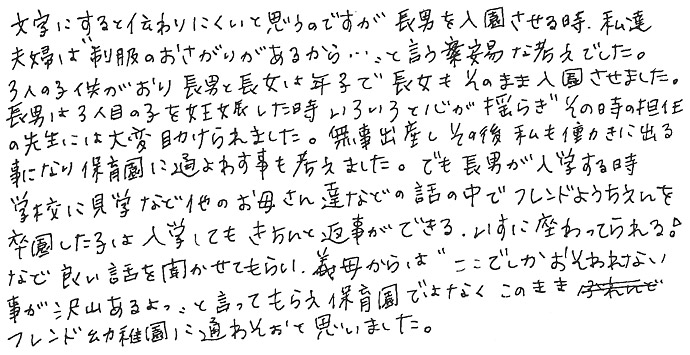 文字にすると伝わりにくいと思うのですが 長男を入園させる時、私達
夫婦は"制服のおさがりがあるから…"と言う安易な考えでした。
3人の子供がおり 長男と長女は年子で 長女も そのまま入園させました。
長男は3人目の子を妊娠した時 いろいろと心が揺らぎ その時の担任
の先生には大変助けられました。無事出産し その後 私も働きに出る
事になり 保育園に通よわす事も考えました。でも長男が入学する時
学校に見学など他のお母さん達などの話の中でフレンドようちえんを
卒園した子は入学しても きちんと返事ができる、いすに座わってられる。
など 良い話を聞かせてもらい、義母からは"ここでしかおそわれない
事が沢山あるよっ"と言ってもらえ 保育園ではなく このまま
フレンド幼稚園に通わそおと思いました。